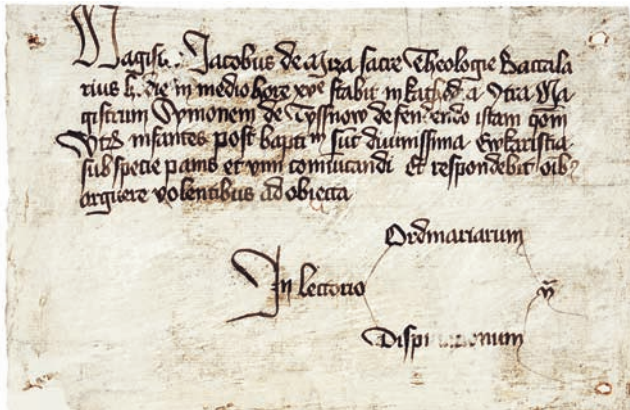 Magistꝰ Jacobus de Miza sacre Theologie Baccala
rius h. die in medio hore xve stabit in kathed a ꝯtra Ma
gistrum Symonem de Tyssnow defen endo istam qōm
Vtrū infantes post baptim̄ sūt diuinissima Ewkaristia
sub specie panis et vini comūicandi Et respondebit oībꝫ
arguere volentibus ad obiecta
Ordinariarum
In lectorio
Disp onum